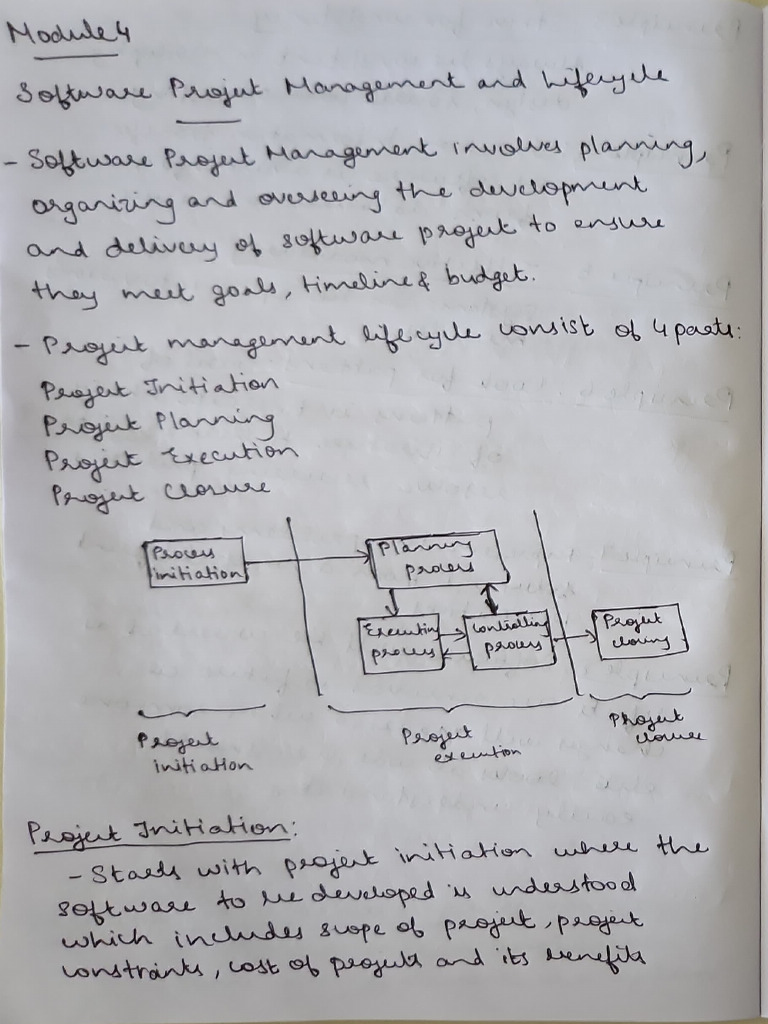 Module 4
Software Project Management and Lifecycle
- Software Project Management involves planning,
organizing and overseeing the development
and delivery of software project to ensure
they meet goals, timeline & budget.
- Project management lifecycle consist of 4 parts:
Project Initiation
Project Planning
Project Execution
Project Closure
Process
initiation
Planning
process
Executing
process
Controlling
process
Project
closing
Project
initiation
Project
execution
Project
closure
Project Initiation:
- Starts with project initiation where the
software to be developed is understood
which includes scope of project, project
constraints, cost of projects and its benefits